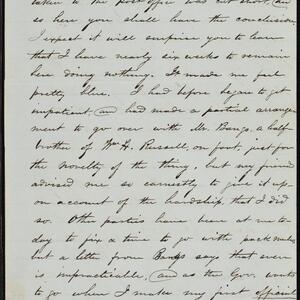 taken to the post office was cut short, and
so here you shall have the conclusion.
I expect it will surprise you to learn
that I have nearly six weeks to remain
here doing nothing. It made me feel
pretty blue. I had before begun to get
impatient, and had made a partial arrange-
ment to go over with Mr. Bangs, a half-
brother of Wm H. Russell, on foot, just for
the novelty of the thing, but my friend
advised me so earnestly to give it up,
on account of the hardship, that I did
so. Other parties have been at me to-
day to fix a time to go with pack mules,
but a letter from Bangs says that even
is impracticable, and as the Gov. wants
to go when I make my first official